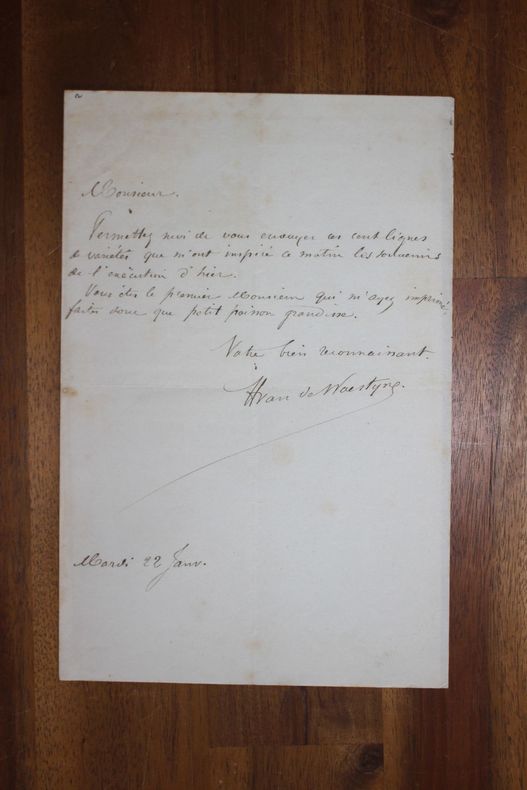 Monsieur.
Permettez moi de vous envoyer ces cent lignes
de variétés que m'ont inspiré ce matin les souvenirs
de l'exécution d'hier.
Vous êtes le premier Monsieur qui m'ayez imprimé
faites donc que petit poisson grandisse.
Votre bien reconnaissant.
Van de Woestyne.
Mardi 22 Janv.